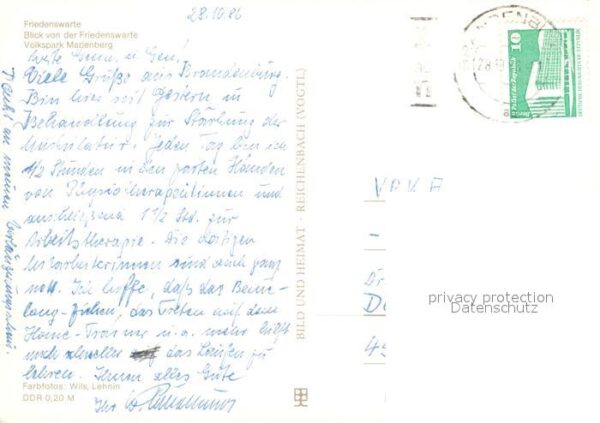 28.10.86
Friedenswarte
Blick von der Friedenswarte
Volkspark Marienberg
Viele Grüße aus Brandenburg.
Bin hier seit gestern in
Behandlung zur Stärkung der
Muskulatur. Jeden Tag bin ich
1/2 Stunden in den zarten Händen
von Physiotherapeutinnen und
anschließend 1 1/2 Std. zur
Arbeitstherapie. Die dortigen
Mitarbeiterinnen sind auch ganz
nett. Ich hoffe, daß das
das Treten auf dem
Home-Trainer u.a. mehr hilft
noch schneller das Laufen zu
lehren. Ihnen alles Gute
Ihr
Farbfotos: Wils, Lehnin
DDR 0,20 M
Dank an meinen
BILD UND HEIMAT · REICHENBACH (VOGTL)
10
Palast der Republik
Berlin
DEUTSCHE DEMOKRATISCHE REPUBLIK
privacy protection
Datenschutz